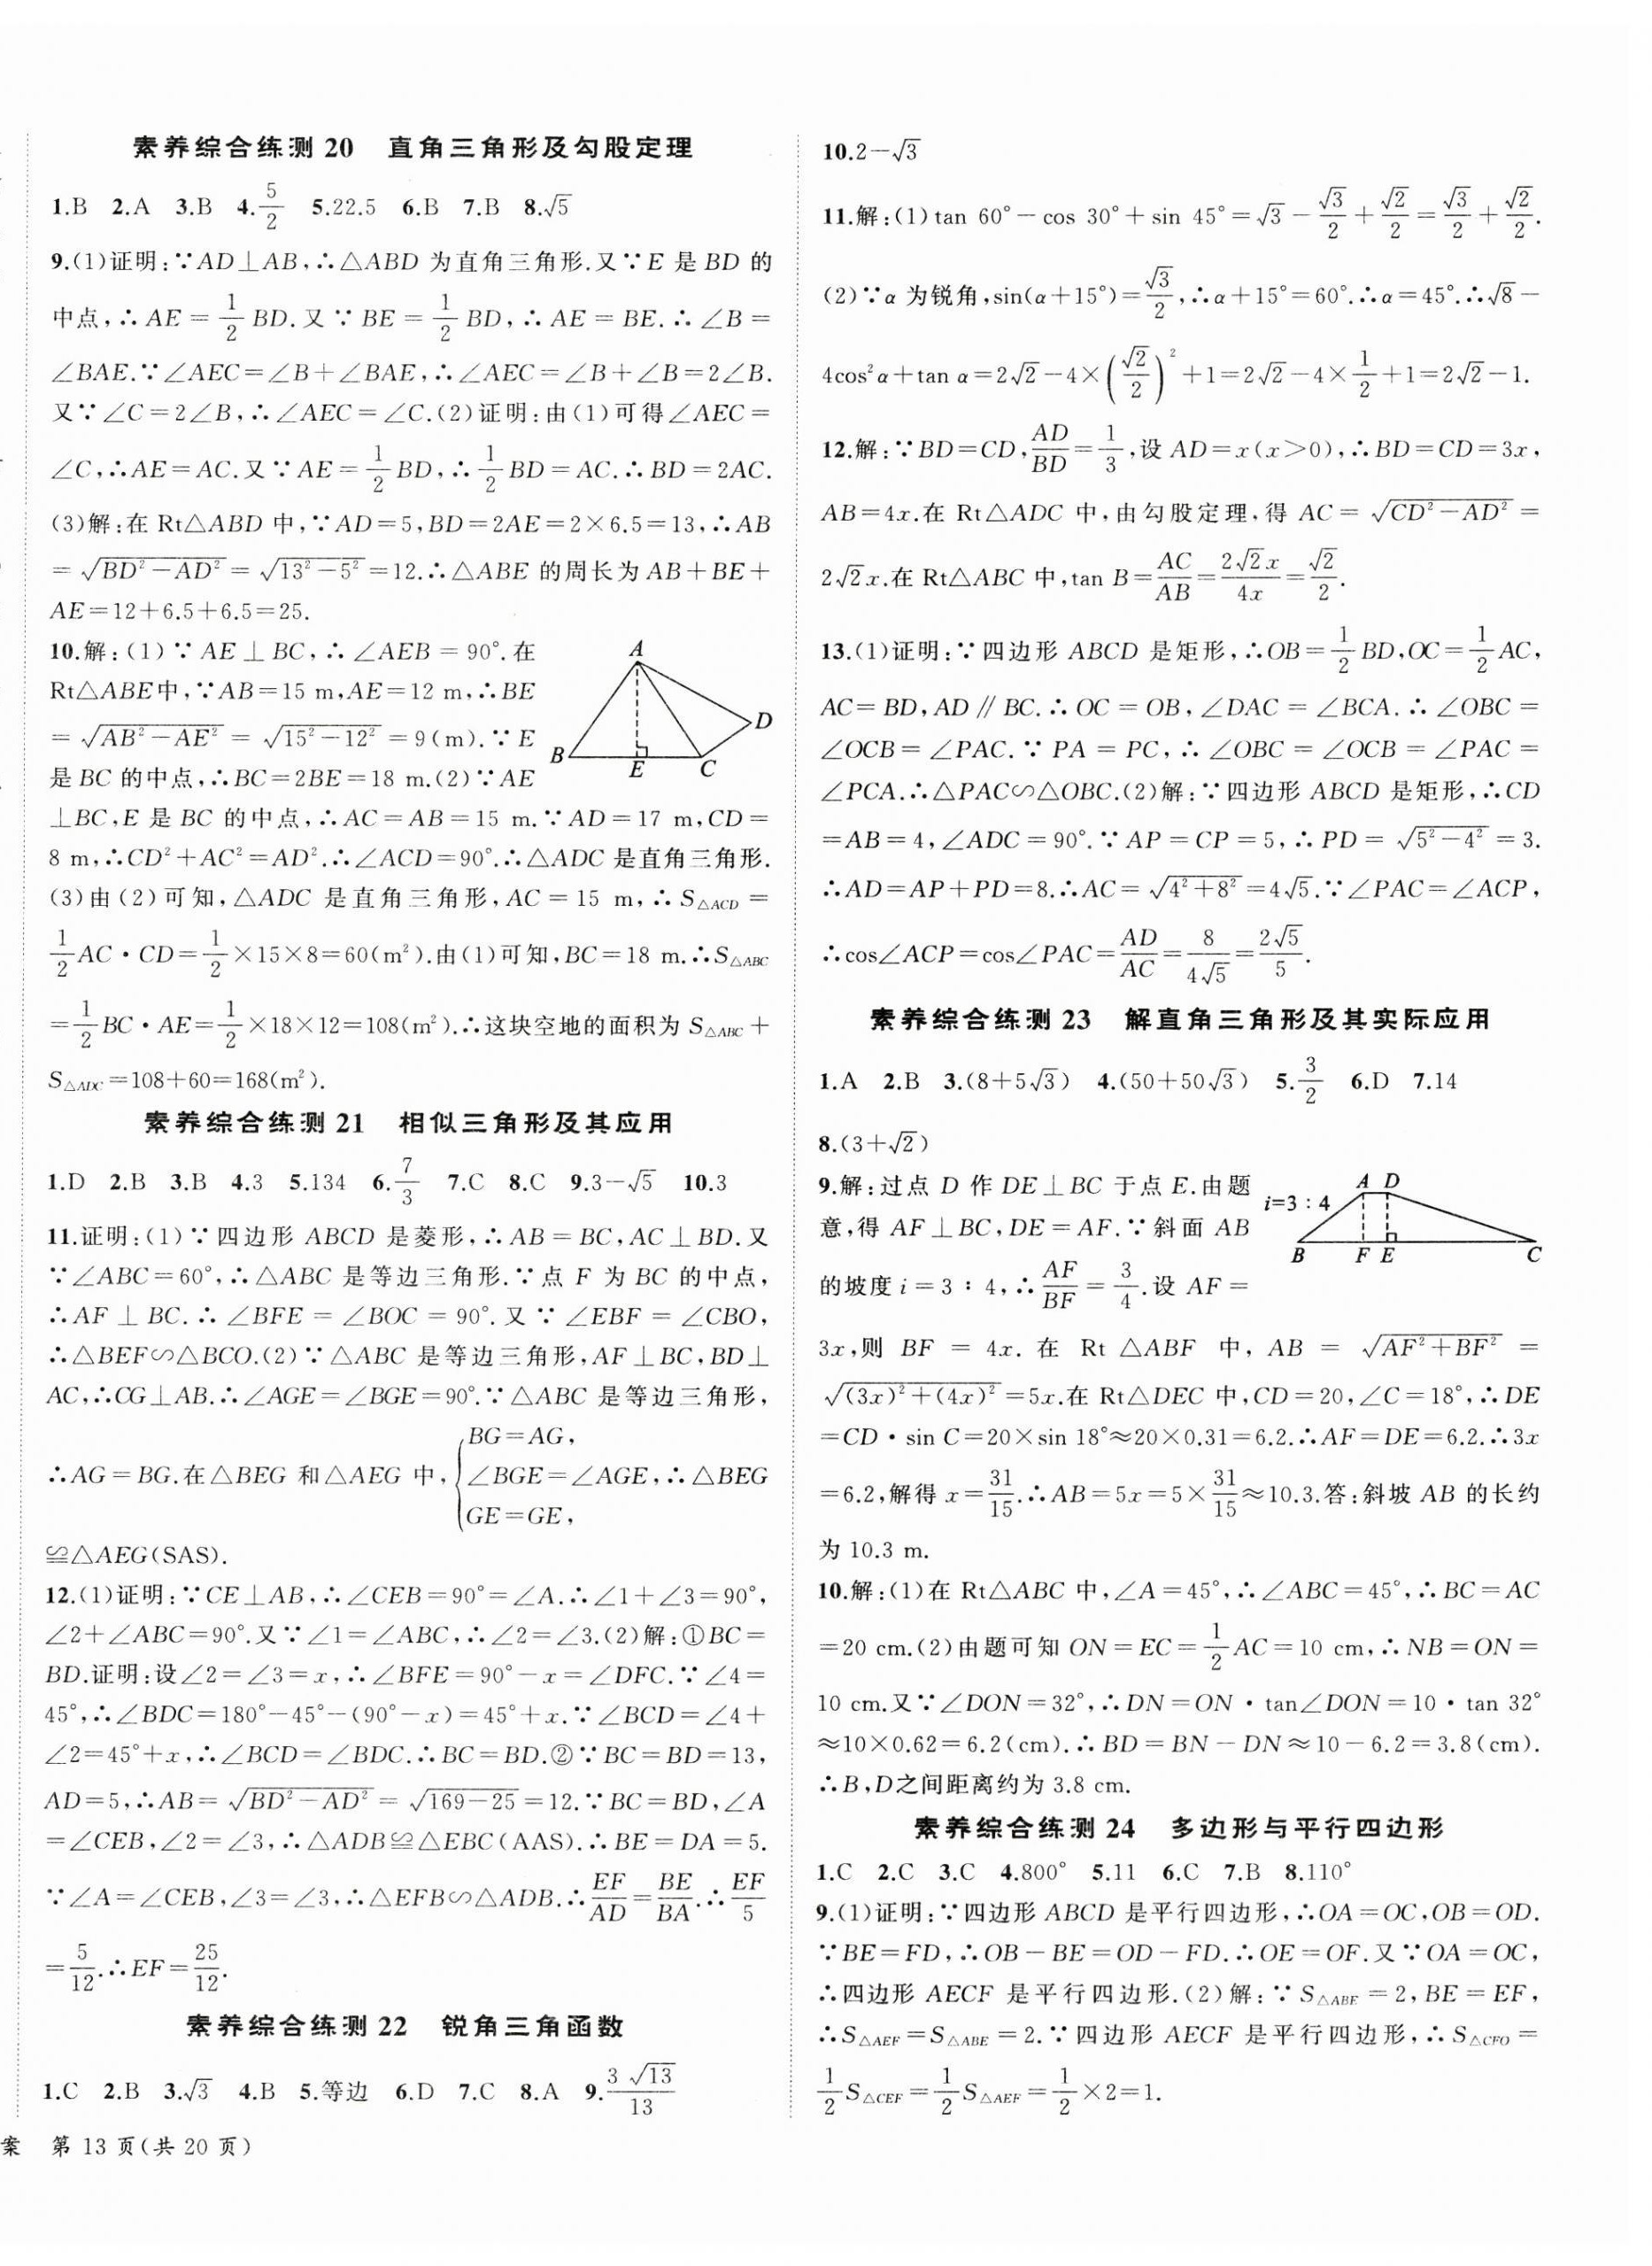 素养综合练测 20　直角三角形及勾股定理
1.B 2.A 3.B 4.5/2 5.22.5 6.B 7.B 8.√5
9.(1)证明:∵AD⊥AB,∴△ABD 为直角三角形.又∵E 是 BD 的
中点,∴AE=1/2 BD.又∵BE=1/2 BD,∴AE=BE.∴∠B=
∠BAE.∵∠AEC=∠B+∠BAE,∴∠AEC=∠B+∠B=2∠B.
又∵∠C=2∠B,∴∠AEC=∠C.(2)证明:由(1)可得∠AEC=
∠C,∴AE=AC.又∵AE=1/2 BD,∴1/2 BD=AC.∴BD=2AC.
(3)解:在 Rt△ABD 中,∵AD=5,BD=2AE=2×6.5=13,∴AB
=√(BD²-AD²)=√(13²-5²)=12.∴△ABE 的周长为 AB+BE+
AE=12+6.5+6.5=25.
10.解:(1)∵AE⊥BC,∴∠AEB=90°.在
Rt△ABE中,∵AB=15 m,AE=12 m,∴BE
=√(AB²-AE²)=√(15²-12²)=9(m).∵E
是 BC 的中点,∴BC=2BE=18 m.(2)∵AE
A
D
B
E
C
⊥BC,E 是 BC 的中点,∴AC=AB=15 m.∵AD=17 m,CD=
8 m,∴CD²+AC²=AD².∴∠ACD=90°.∴△ADC 是直角三角形.
(3)由(2)可知,△ADC 是直角三角形,AC=15 m,∴S△ACD=
1/2 AC·CD=1/2×15×8=60(m²).由(1)可知,BC=18 m.∴S△ABC
=1/2 BC·AE=1/2×18×12=108(m²).∴这块空地的面积为 S△ABC+
S△ADC=108+60=168(m²).
素养综合练测 21　相似三角形及其应用
1.D 2.B 3.B 4.3 5.134 6.7/3 7.C 8.C 9.3-√5 10.3
11.证明:(1)∵四边形 ABCD 是菱形,∴AB=BC,AC⊥BD.又
∵∠ABC=60°,∴△ABC 是等边三角形.∵点 F 为 BC 的中点,
∴AF⊥BC.∴∠BFE=∠BOC=90°.又∵∠EBF=∠CBO,
∴△BEF∽△BCO.(2)∵△ABC 是等边三角形,AF⊥BC,BD⊥
AC,∴CG⊥AB.∴∠AGE=∠BGE=90°.∵△ABC 是等边三角形,
∴AG=BG.在△BEG 和△AEG 中,{BG=AG, ∠BGE=∠AGE, GE=GE, ∴△BEG
≌△AEG(SAS).
12.(1)证明:∵CE⊥AB,∴∠CEB=90°=∠A.∴∠1+∠3=90°,
∠2+∠ABC=90°.又∵∠1=∠ABC,∴∠2=∠3.(2)解:①BC=
BD.证明:设∠2=∠3=x,∴∠BFE=90°-x=∠DFC.∵∠4=
45°,∴∠BDC=180°-45°-(90°-x)=45°+x.∵∠BCD=∠4+
∠2=45°+x,∴∠BCD=∠BDC.∴BC=BD.②∵BC=BD=13,
AD=5,∴AB=√(BD²-AD²)=√(169-25)=12.∵BC=BD,∠A
=∠CEB,∠2=∠3,∴△ADB≌△EBC(AAS).∴BE=DA=5.
∵∠A=∠CEB,∠3=∠3,∴△EFB∽△ADB.∴EF/AD=BE/BA.∴EF/5
=5/12.∴EF=25/12.
素养综合练测 22　锐角三角函数
1.C 2.B 3.√3 4.B 5.等边 6.D 7.C 8.A 9.3√13/13
案　第 13 页(共 20 页)
10.2-√3
11.解:(1)tan 60°-cos 30°+sin 45°=√3-√3/2+√2/2=√3/2+√2/2.
(2)∵α 为锐角,sin(α+15°)=√3/2,∴α+15°=60°.∴α=45°.∴√8-
4cos²α+tan α=2√2-4×(√2/2)²+1=2√2-4×1/2+1=2√2-1.
12.解:∵BD=CD,AD/BD=1/3,设 AD=x(x>0),∴BD=CD=3x,
AB=4x.在 Rt△ADC 中,由勾股定理,得 AC=√(CD²-AD²)=
2√2x.在 Rt△ABC 中,tan B=AC/AB=2√2x/4x=√2/2.
13.(1)证明:∵四边形 ABCD 是矩形,∴OB=1/2 BD,OC=1/2 AC,
AC=BD,AD∥BC.∴OC=OB,∠DAC=∠BCA.∴∠OBC=
∠OCB=∠PAC.∵PA=PC,∴∠OBC=∠OCB=∠PAC=
∠PCA.∴△PAC∽△OBC.(2)解:∵四边形 ABCD 是矩形,∴CD
=AB=4,∠ADC=90°.∵AP=CP=5,∴PD=√(5²-4²)=3.
∴AD=AP+PD=8.∴AC=√(4²+8²)=4√5.∵∠PAC=∠ACP,
∴cos∠ACP=cos∠PAC=AD/AC=8/4√5=2√5/5.
素养综合练测 23　解直角三角形及其实际应用
1.A 2.B 3.(8+5√3) 4.(50+50√3) 5.3/2 6.D 7.14
8.(3+√2)
9.解:过点 D 作 DE⊥BC 于点 E.由题
意,得 AF⊥BC,DE=AF.∵斜面 AB
的坡度 i=3∶4,∴AF/BF=3/4.设 AF=
A D
i=3∶4
B F E C
3x,则 BF=4x.在 Rt△ABF 中,AB=√(AF²+BF²)=
√((3x)²+(4x)²)=5x.在 Rt△DEC 中,CD=20,∠C=18°,∴DE
=CD·sin C=20×sin 18°≈20×0.31=6.2.∴AF=DE=6.2.∴3x
=6.2,解得 x=31/15.∴AB=5x=5×31/15≈10.3.答:斜坡 AB 的长约
为 10.3 m.
10.解:(1)在 Rt△ABC 中,∠A=45°,∴∠ABC=45°,∴BC=AC
=20 cm.(2)由题可知 ON=EC=1/2 AC=10 cm,∴NB=ON=
10 cm.又∵∠DON=32°,∴DN=ON·tan∠DON=10·tan 32°
≈10×0.62=6.2(cm).∴BD=BN-DN≈10-6.2=3.8(cm).
∴B,D之间距离约为 3.8 cm.
素养综合练测 24　多边形与平行四边形
1.C 2.C 3.C 4.800° 5.11 6.C 7.B 8.110°
9.(1)证明:∵四边形 ABCD 是平行四边形,∴OA=OC,OB=OD.
∵BE=FD,∴OB-BE=OD-FD.∴OE=OF.又∵OA=OC,
∴四边形 AECF 是平行四边形.(2)解:∵S△ABE=2,BE=EF,
∴S△AEF=S△ABE=2.∵四边形 AECF 是平行四边形,∴S△CFO=
1/2 S△CEF=1/2 S△AEF=1/2×2=1.